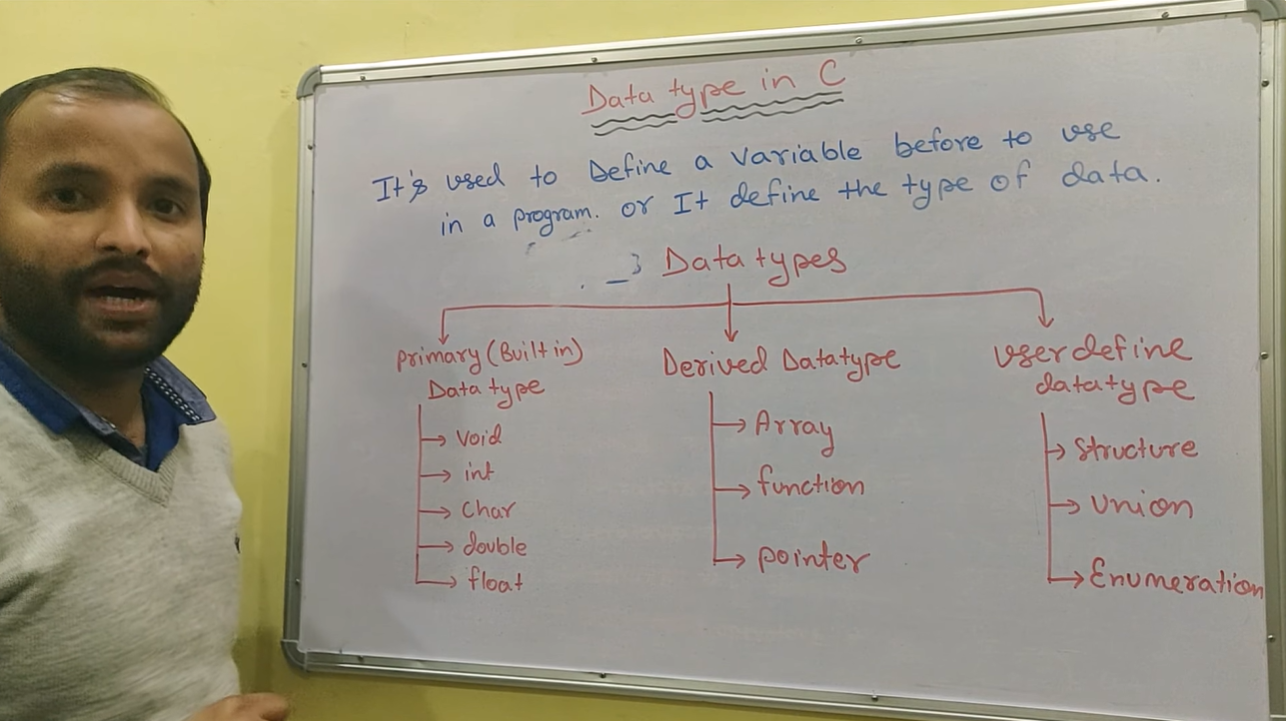 Data type in C
It's used to Define a variable before to use
in a program. or It define the type of data.
Data types
primary (Built in)
Data type
void
int
char
double
float
Derived Datatype
Array
function
pointer
user define
datatype
structure
union
Enumeration